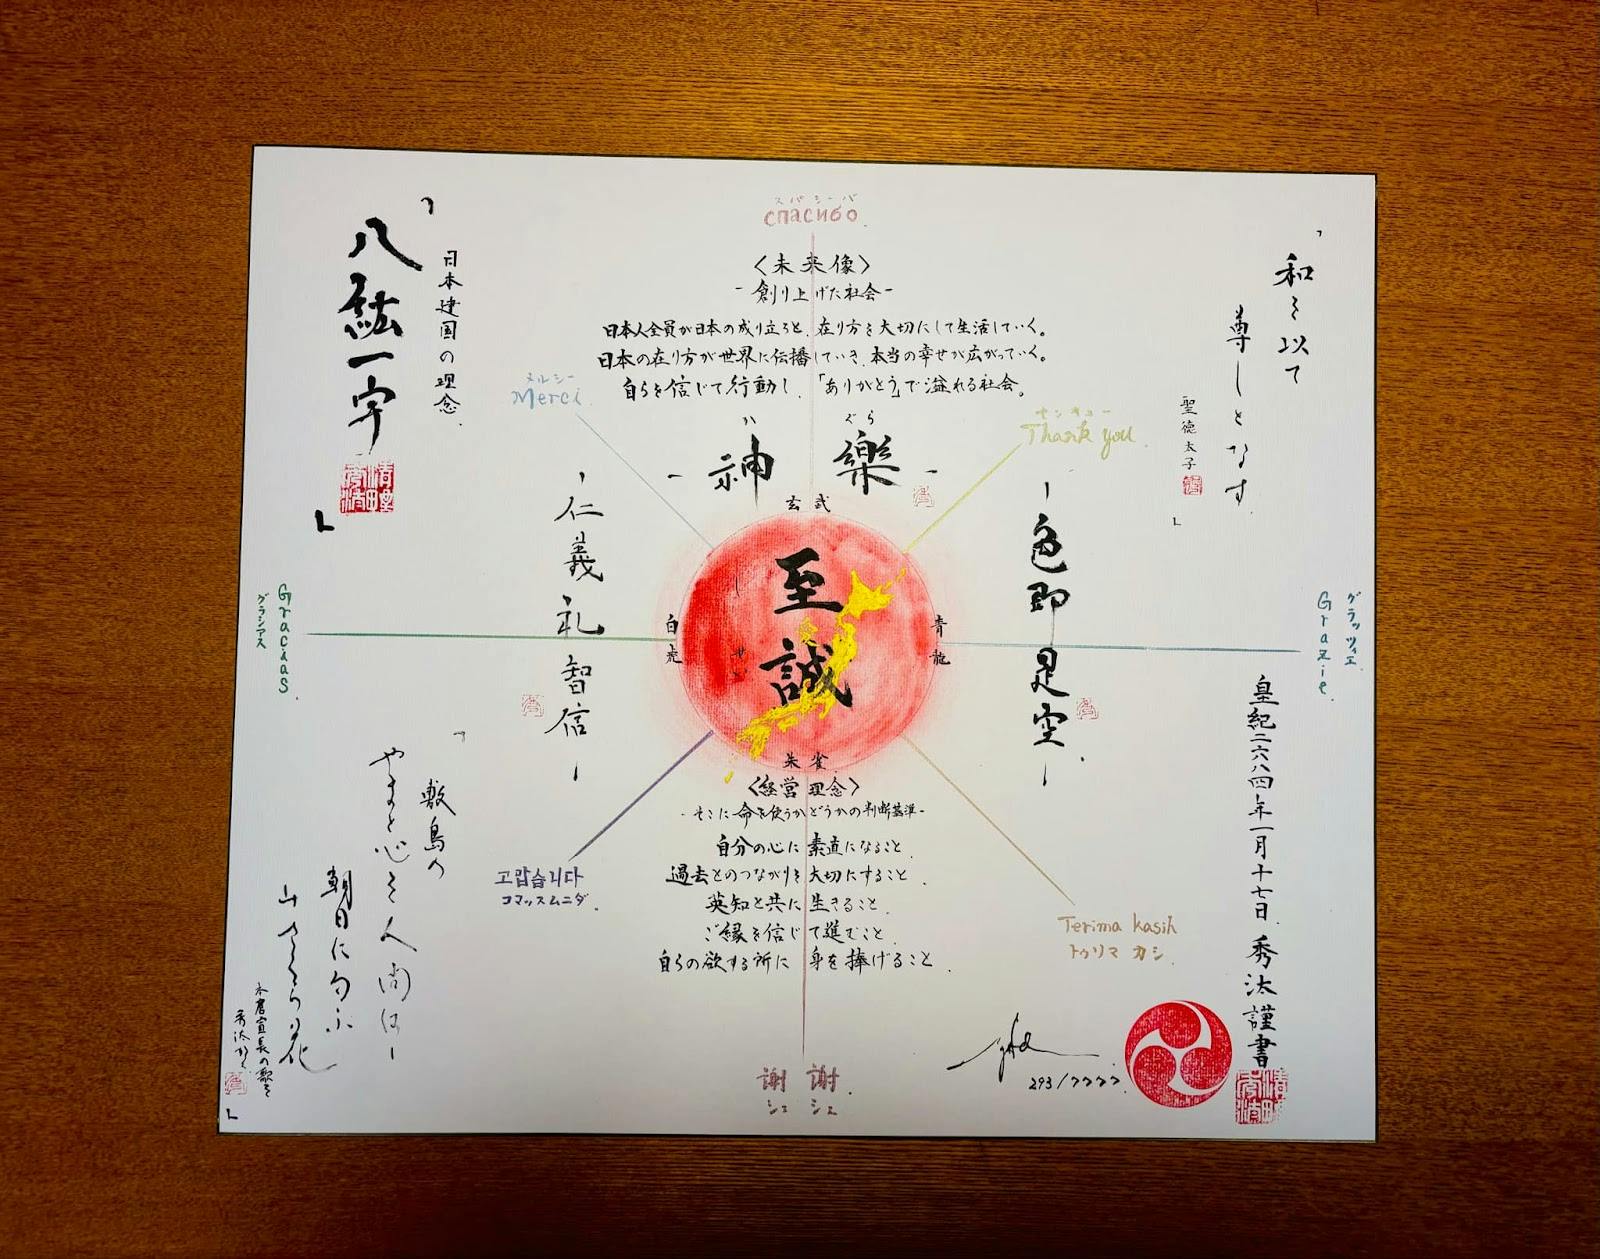 スパシーバ
спасибо
〈未来像〉
-創り上げた社会-
日本人全員が日本の成り立ちと、在り方を大切にして生活していく。
日本の在り方が世界に伝播していき、本当の幸せが広がっていく。
自らを信じて行動し、「ありがとう」で溢れる社会。
「和を以て
尊しとなす
聖徳太子
」
「八紘一宇
日本建国の理念
」
メルシー
Merci
サンキュー
Thank you
か ぐら
-神楽-
玄武
-仁義礼智信-
-色即是空-
至誠
し せい
白虎
青龍
朱雀
Gracias
グラシアス
グラッツィエ
Grazie
〈経営理念〉
-そこに命を使うかどうかの判断基準-
自分の心に素直になること
過去とのつながりを大切にすること
英知と共に生きること
ご縁を信じて進むこと
自らの欲する所に身を捧げること
고맙습니다
コマッスムニダ
Terima kasih
トゥリマ カシ
謝謝
シェ シェ
「敷島の
やまと心を人問はば
朝日に匂ふ
山さくら花
本居宣長の歌を
秀汰かく
」
皇紀二六八四年一月十七日 秀汰謹書
293/7777